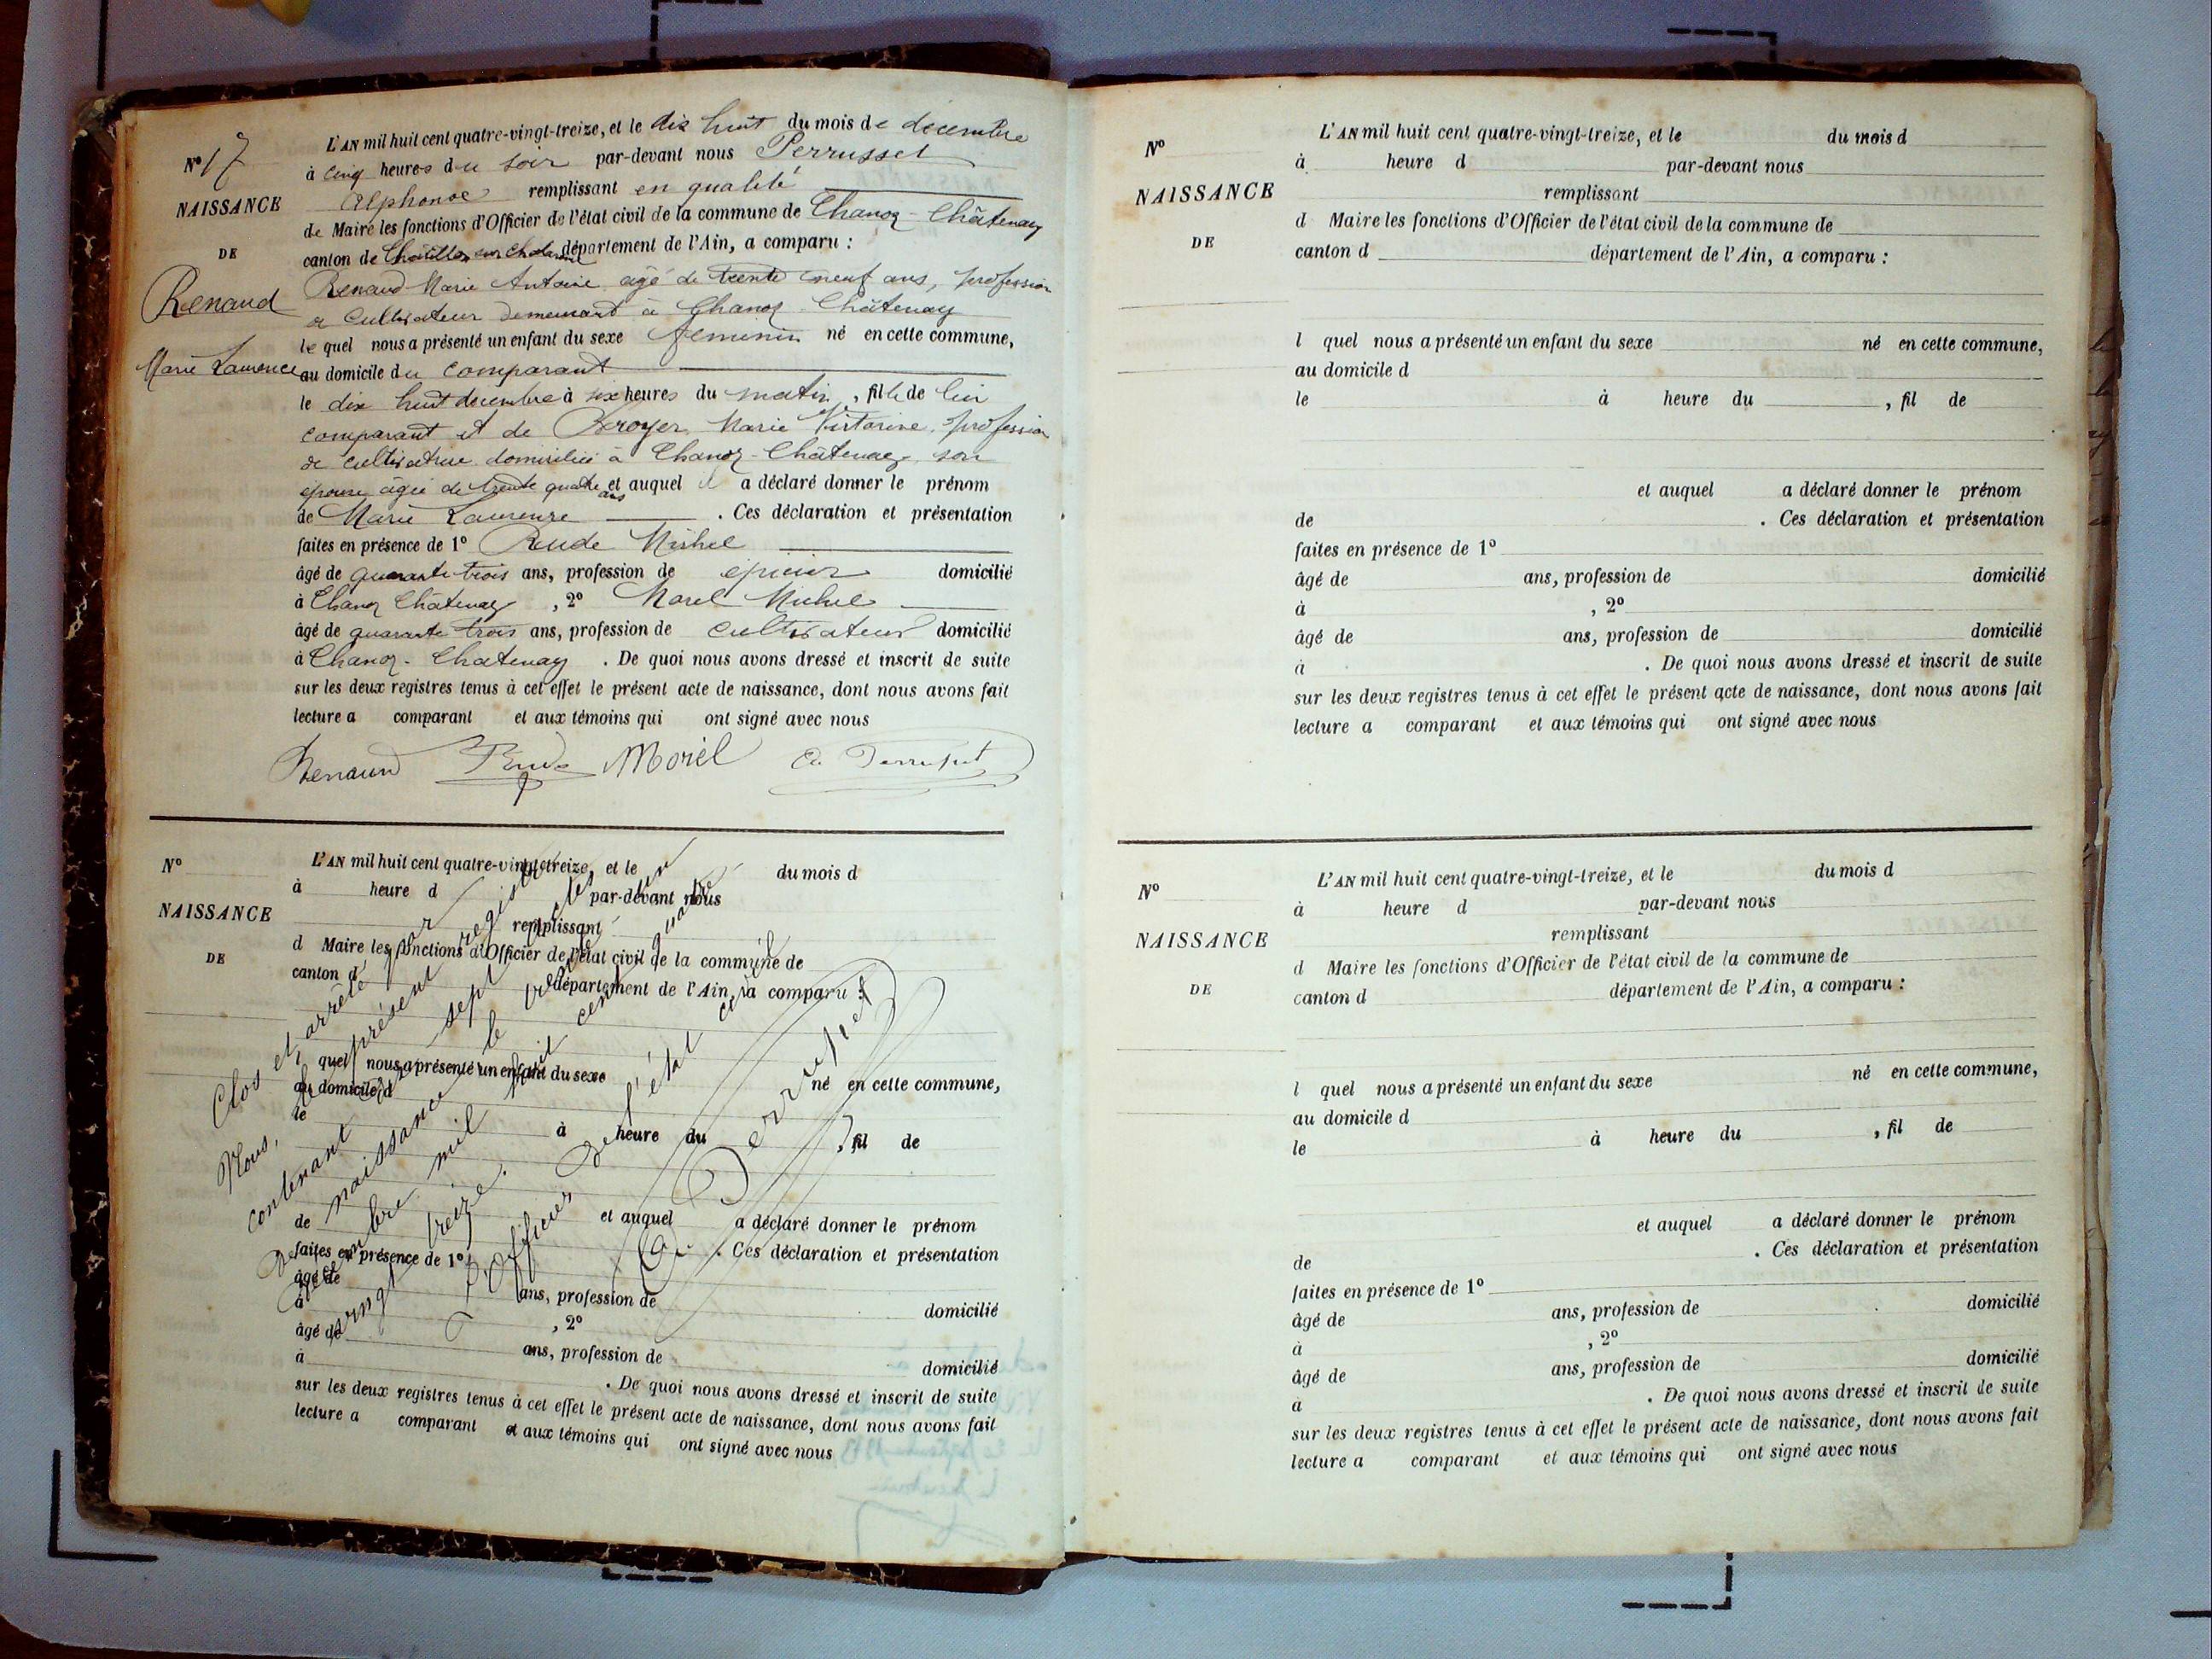 N° 17
NAISSANCE
DE
Renaud
Marie Laurence
L'AN mil huit cent quatre-vingt-treize, et le dix huit du mois de décembre
à cinq heures du soir par-devant nous Perrusset
Alphonse remplissant en qualité
de Maire les fonctions d'Officier de l'état civil de la commune de Chanoz-Châtenay
canton de Châtillon sur Chalaronne département de l'Ain, a comparu :
Renaud Marie Antoine âgé de trente neuf ans, profession
de Cultivateur demeurant à Chanoz-Châtenay
le quel nous a présenté un enfant du sexe feminin né en cette commune,
au domicile du comparant
le dix huit décembre à six heures du matin, fille de lui
comparant et de Broyer Marie Victorine, profession
de cultivatrice domiciliée à Chanoz-Châtenay son
épouse âgée de trente quatre ans et auquel il a déclaré donner le prénom
de Marie Laurence . Ces déclaration et présentation
faites en présence de 1° Rude Michel
âgé de quarante trois ans, profession de épicier domicilié
à Chanoz Châtenay , 2° Morel Michel
âgé de quarante trois ans, profession de cultivateur domicilié
à Chanoz-Chatenay . De quoi nous avons dressé et inscrit de suite
sur les deux registres tenus à cet effet le présent acte de naissance, dont nous avons fait
lecture a comparant et aux témoins qui ont signé avec nous
Renaud Rude Morel A. Perrusset
N°
NAISSANCE
DE
L'AN mil huit cent quatre-vingt-treize, et le du mois d
à heure d par-devant nous
remplissant
d Maire les fonctions d'Officier de l'état civil de la commune de
canton d département de l'Ain, a comparu :
l quel nous a présenté un enfant du sexe né en cette commune,
au domicile d
le à heure du , fil de
et auquel a déclaré donner le prénom
de . Ces déclaration et présentation
faites en présence de 1°
âgé de ans, profession de domicilié
à , 2°
âgé de ans, profession de domicilié
à . De quoi nous avons dressé et inscrit de suite
sur les deux registres tenus à cet effet le présent acte de naissance, dont nous avons fait
lecture a comparant et aux témoins qui ont signé avec nous
Clos et arrêté par
Nous, le présent registre
contenant dix-sept actes
de naissance le trente un
Décembre mil huit cent quatre
vingt treize.
L'Officier de l'état civil
A. Perrusset
N°
NAISSANCE
DE
L'AN mil huit cent quatre-vingt-treize, et le du mois d
à heure d par-devant nous
remplissant
d Maire les fonctions d'Officier de l'état civil de la commune de
canton d département de l'Ain, a comparu :
l quel nous a présenté un enfant du sexe né en cette commune,
au domicile d
le à heure du , fil de
et auquel a déclaré donner le prénom
de . Ces déclaration et présentation
faites en présence de 1°
âgé de ans, profession de domicilié
à , 2°
âgé de ans, profession de domicilié
à . De quoi nous avons dressé et inscrit de suite
sur les deux registres tenus à cet effet le présent acte de naissance, dont nous avons fait
lecture a comparant et aux témoins qui ont signé avec nous
N°
NAISSANCE
DE
L'AN mil huit cent quatre-vingt-treize, et le du mois d
à heure d par-devant nous
remplissant
d Maire les fonctions d'Officier de l'état civil de la commune de
canton d département de l'Ain, a comparu :
l quel nous a présenté un enfant du sexe né en cette commune,
au domicile d
le à heure du , fil de
et auquel a déclaré donner le prénom
de . Ces déclaration et présentation
faites en présence de 1°
âgé de ans, profession de domicilié
à , 2°
âgé de ans, profession de domicilié
à . De quoi nous avons dressé et inscrit de suite
sur les deux registres tenus à cet effet le présent acte de naissance, dont nous avons fait
lecture a comparant et aux témoins qui ont signé avec nous